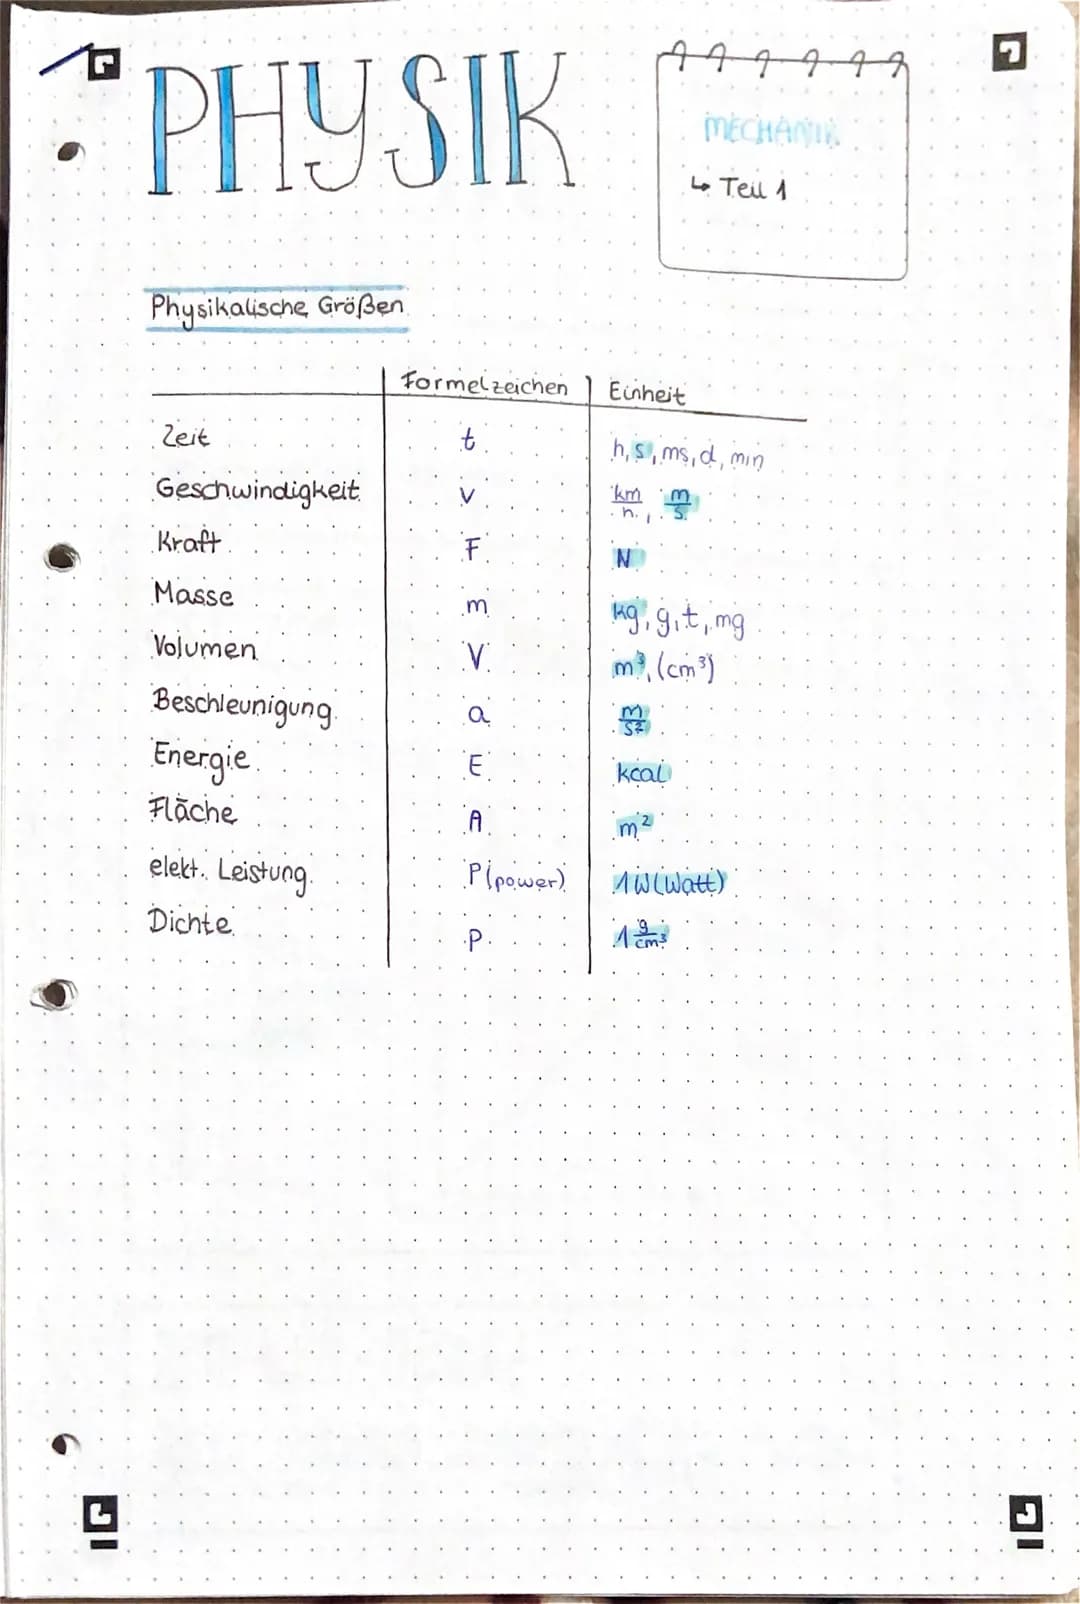 PHYSIK
MECHANIK
↳ Teil 1
Physikalische Größen
Formelzeichen Einheit
Zeit t h, s, ms, d, min
Geschwindigkeit v km/h, m/s
Kraft F N
Masse m kg, g, t, mg
Volumen V m³, (cm³)
Beschleunigung a m/s²
Energie E kcal
Fläche A m²
elekt. Leistung P (power) 1W (Watt)
Dichte P 1 g/cm³